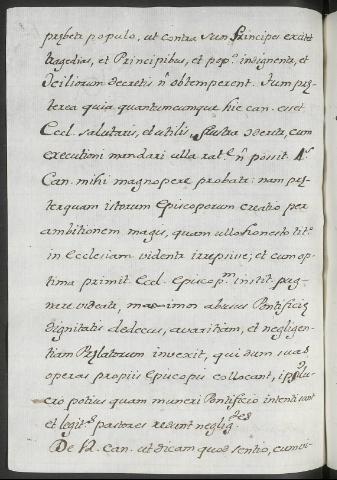 præbeta populo, ut contra suum Principes excitet
tragedias, et Principibus, et pop.º indignentur, et
Dciliorum decretis ñ obtemperent. Tum præ-
terea quia quantumcumque hic can. esset
Eccl. salutaris, et utilis, frustra ederetur, cum
executioni mandari ulla rat.e ñ possit. 4.s
Can. mihi magnopere probatr: nam præ-
terquam istorum Episcoporum creatio per
ambitionem magis, quam ullo honesto tit.º
in Ecclesiam videntr irrepsisse; et cum op-
tima primit. Eccl. Episcop.m instit. pug-
nare videatr, maximos abusus Pontificiæ
dignitatis dedecus, avaritiam, et negligen-
tiam Prælatorum invexit, qui dum suas
operas propriis Episcopis collocant, ipsi lu-
cro potius quam muneri Pontificio intenti sunt
et legit.s pastores redunt neglig.des
De V.º can. ut dicam quod sentio, cum vi-